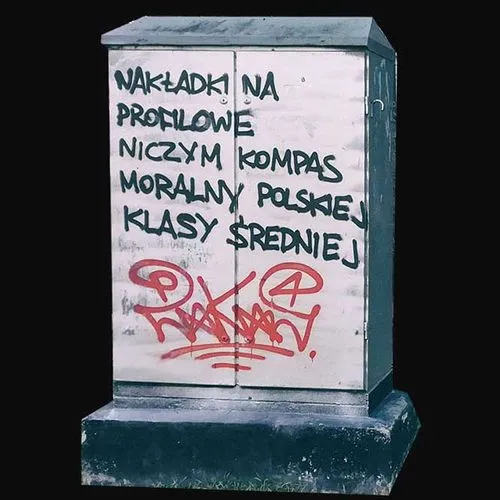 NAKŁADKI NA
PROFILOWE
NICZYM KOMPAS
MORALNY POLSKIEJ
KLASY ŚREDNIEJ